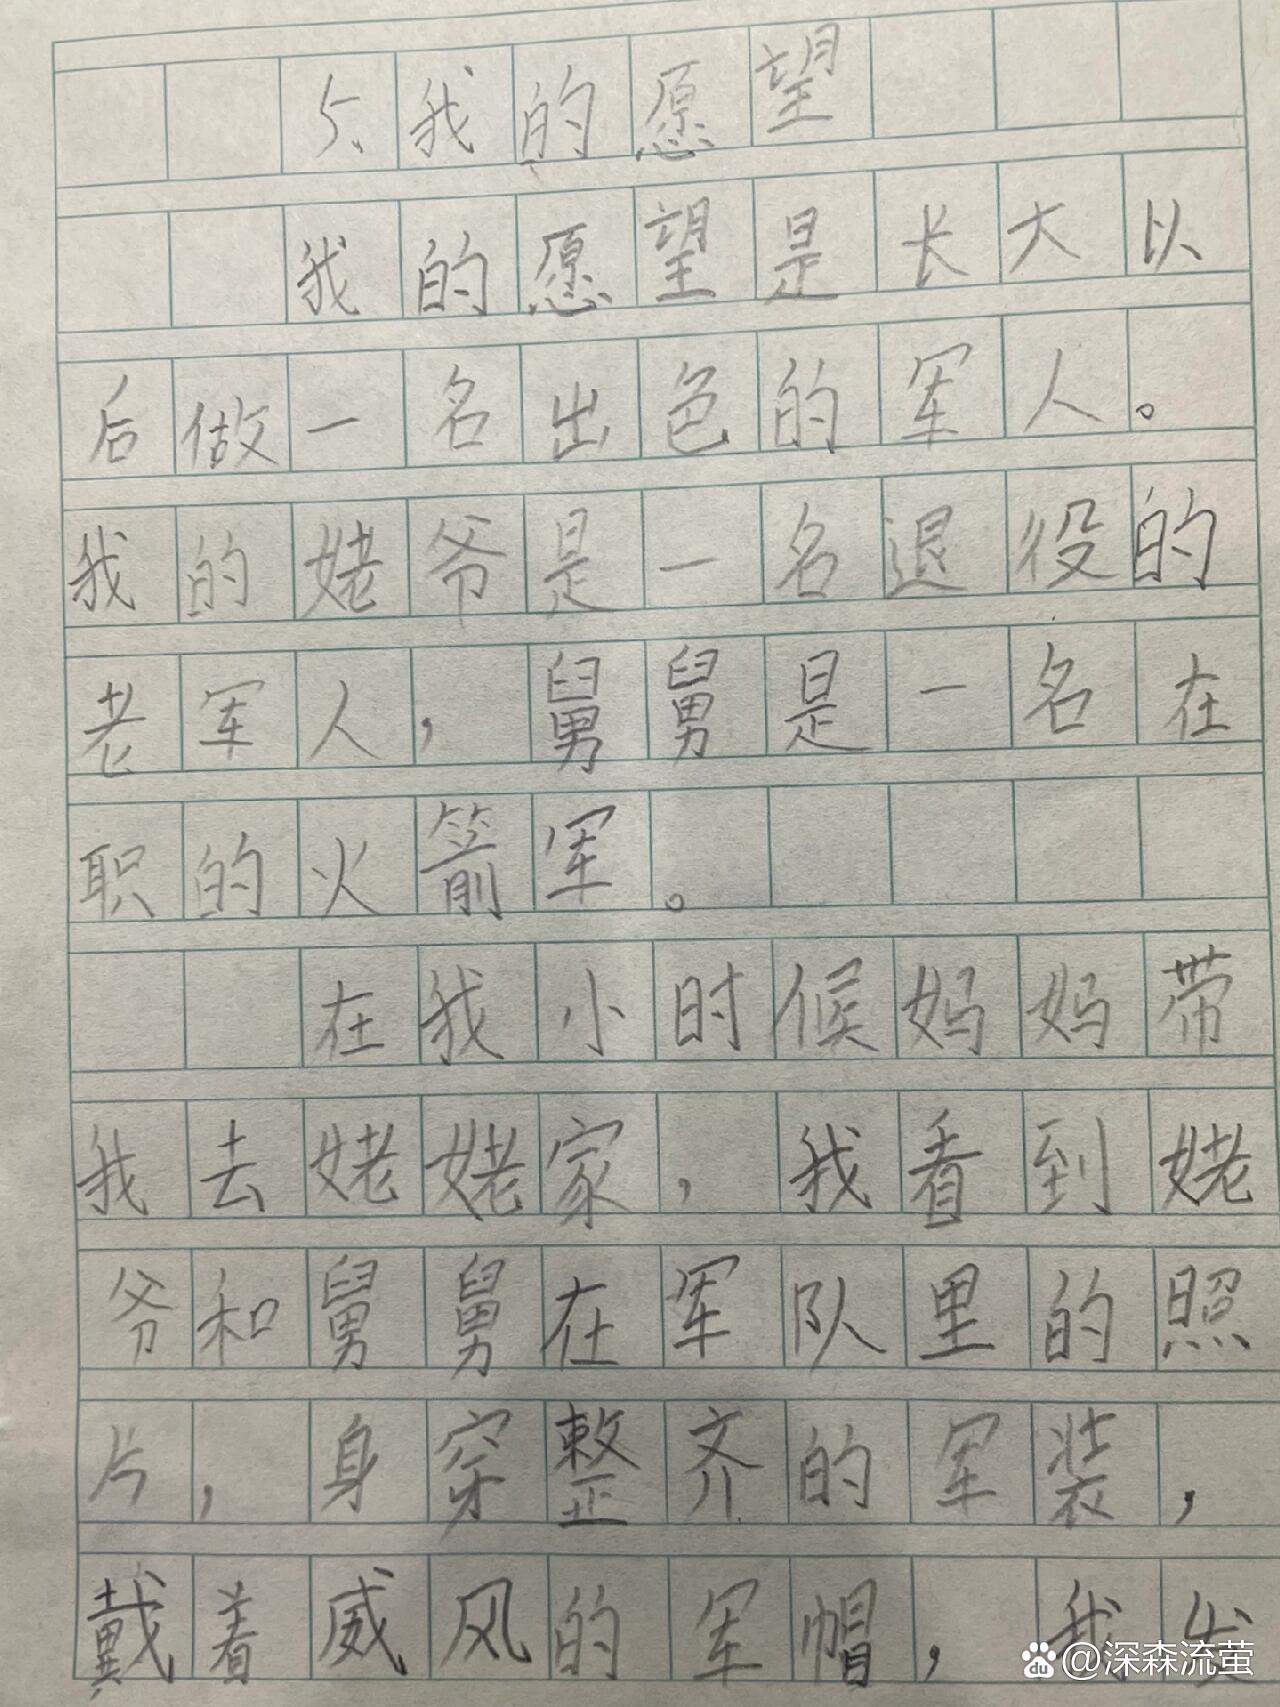 5、我的愿望
我的愿望是长大以
后做一名出色的军人。
我的姥爷是一名退役的
老军人，舅舅是一名在
职的火箭军。
在我小时候妈妈带
我去姥姥家，我看到姥
爷和舅舅在军队里的照
片，身穿整齐的军装，
戴着威风的军帽，我发
du @深森流萤